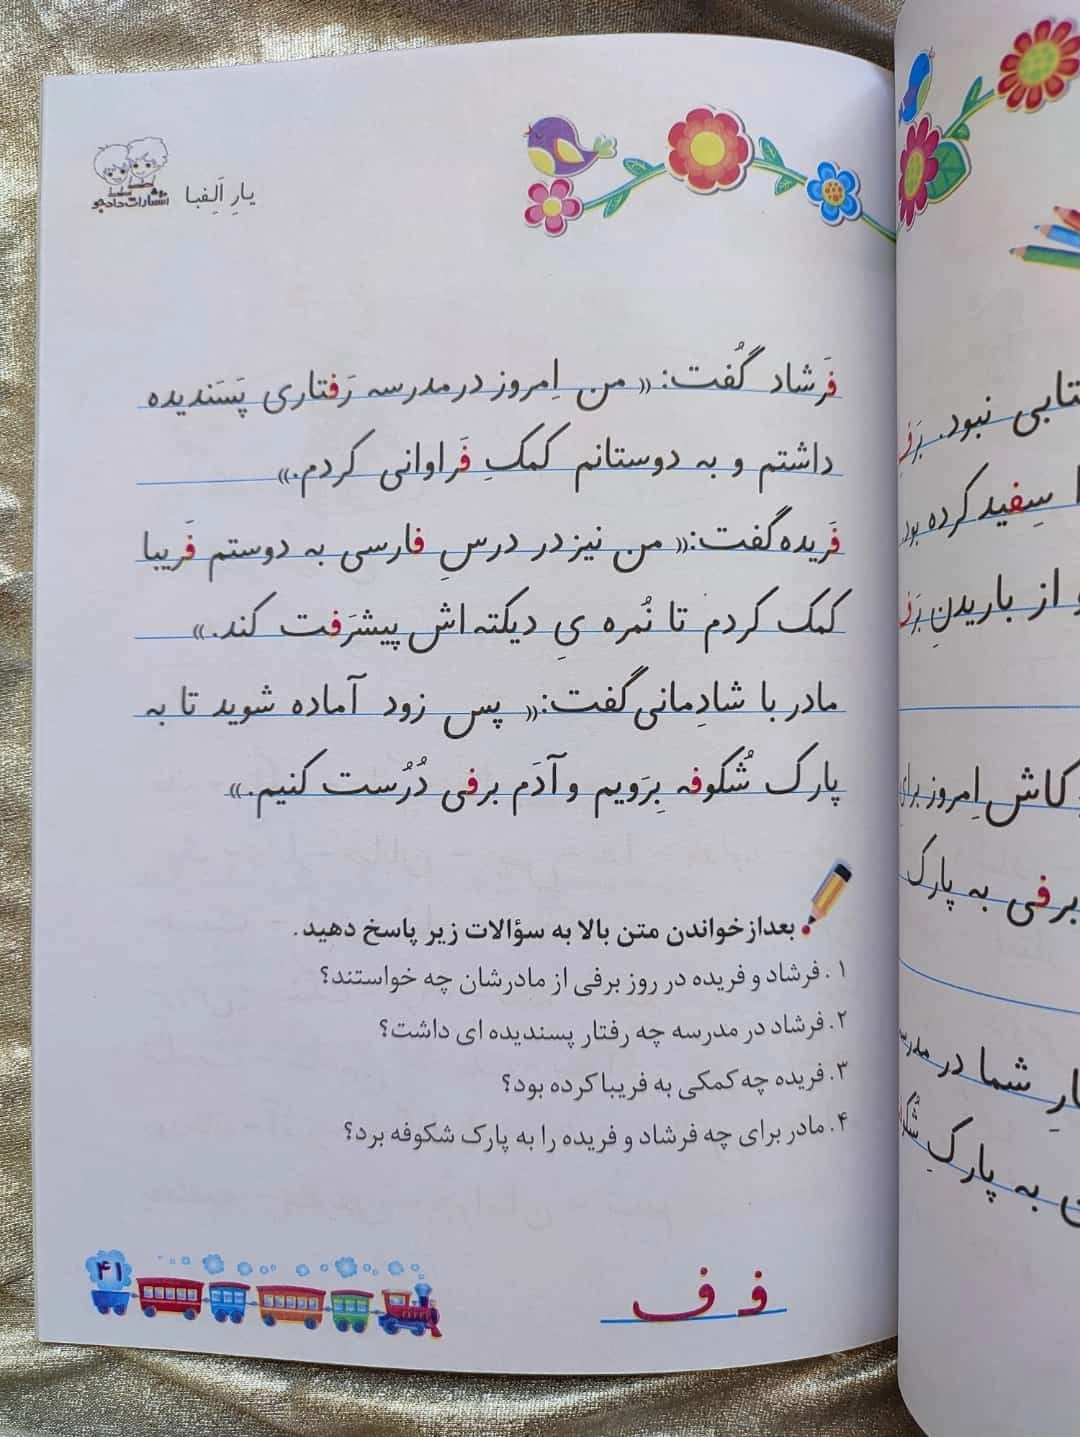 یارِ اَلِفبا
انتشارات دادجو
فَرشاد گُفت: «من اِمروز در مدرسه رَفتاری پَسَندیده
داشتم و به دوستانم کمکِ فَراوانی کردم.»
فَریده گفت: «من نیز در درسِ فارسی به دوستم فَریبا
کمک کردم تا نُمره یِ دیکته اش پیشرَفت کند.»
مادر با شادِمانی گفت: «پس زود آماده شوید تا به
پارک شُکوفه بِرَویم و آدَم برفی دُرُست کنیم.»
بعد از خواندن متن بالا به سؤالات زیر پاسخ دهید.
۱. فرشاد و فریده در روز برفی از مادرشان چه خواستند؟
۲. فرشاد در مدرسه چه رفتار پسندیده ای داشت؟
۳. فریده چه کمکی به فریبا کرده بود؟
۴. مادر برای چه فرشاد و فریده را به پارک شکوفه برد؟
ف ف
۴۱
تابی نبود. بَرف
سِفید کرده بود.
و از باریدنِ بَرف
کاش اِمروز برایِ
برفی به پارک
شما در مدرسه
به پارکِ